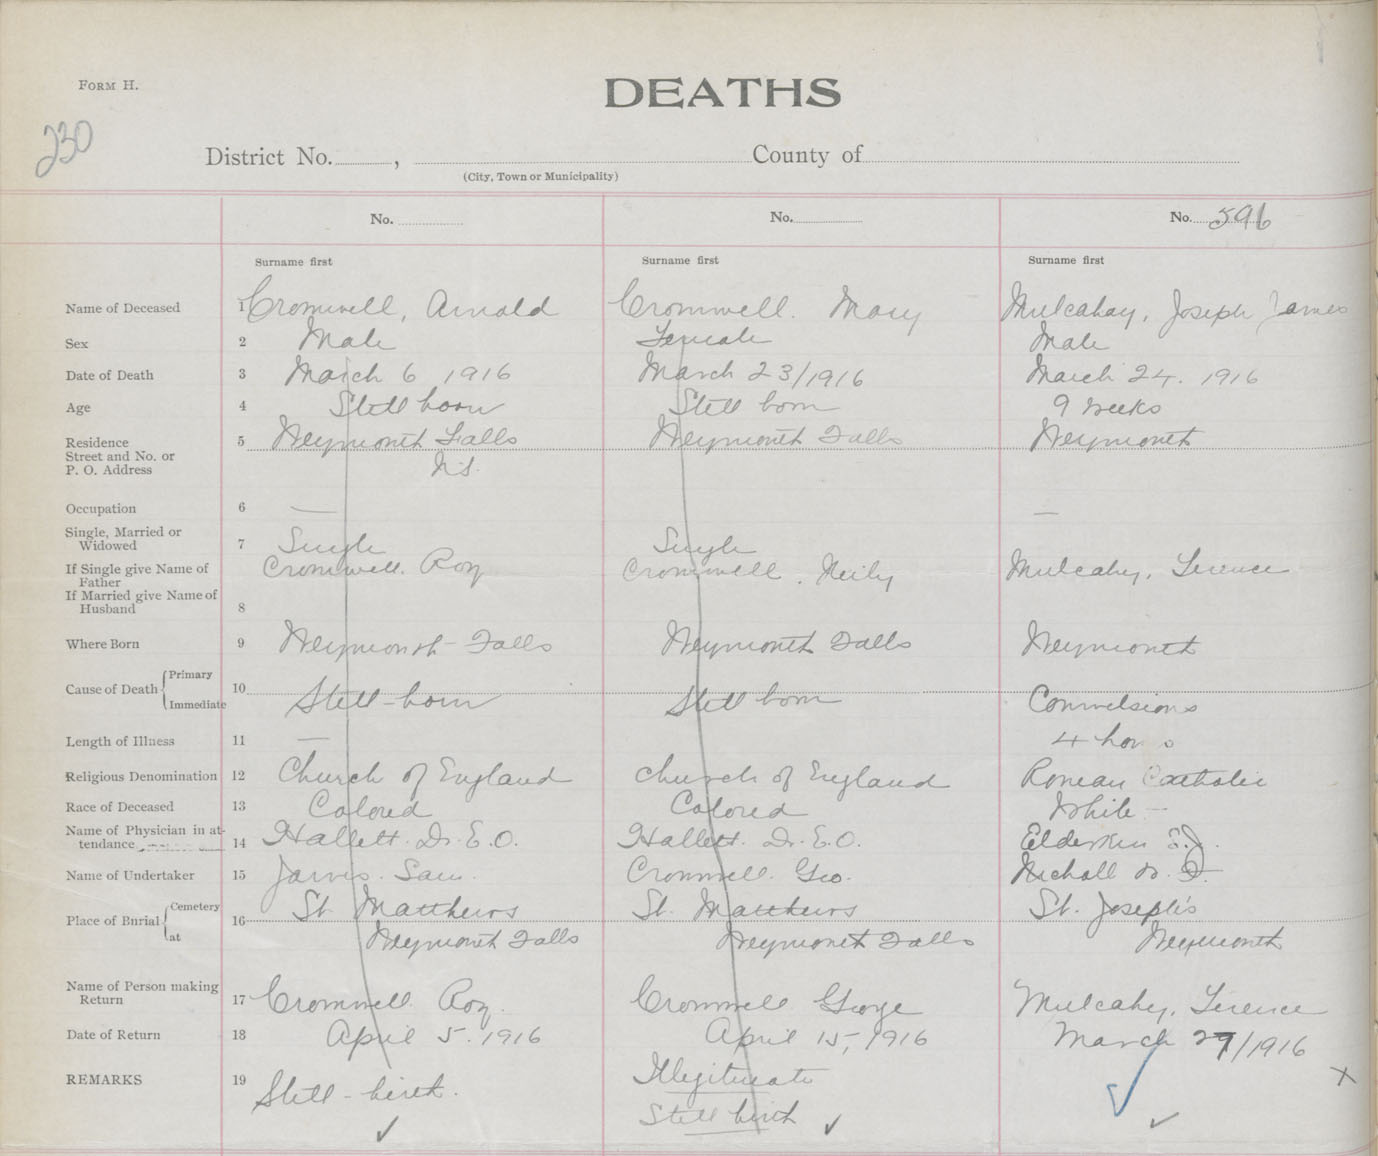 FORM H.
DEATHS
230
District No. , County of
(City, Town or Municipality)
No. No. No. 596
Surname first Surname first Surname first
Name of Deceased 1 Cromwell, Arnold Cromwell. Mary Mulcahay, Joseph James
Sex 2 Male Female Male
Date of Death 3 March 6 1916 March 23/1916 March 24. 1916
Age 4 Still born Still born 9 weeks
Residence 5 Weymouth Falls Weymouth Falls Weymouth
Street and No. or
P. O. Address N.S.
Occupation 6 — —
Single, Married or
Widowed 7 Single Single
If Single give Name of
Father Cromwell. Roy Cromwell, Mulcahy, Terence
If Married give Name of
Husband 8
Where Born 9 Weymouth Falls Weymouth Falls Weymouth
Cause of Death Primary
Immediate 10 Still-born Still born Convulsions
Length of Illness 11 — 4 hours
Religious Denomination 12 Church of England Church of England Roman Catholic
Race of Deceased 13 Colored Colored White –
Name of Physician in at-
tendance 14 Hallett. Dr. E.O. Hallett. Dr. E.O. Elderkin E.J.
Name of Undertaker 15 Jarvis. Sam. Cromwell. Geo. Nicholl
Place of Burial Cemetery 16 St. Matthews St. Matthews St. Joseph's
at Weymouth Falls Weymouth Falls Weymouth
Name of Person making
Return 17 Cromwell Roy Cromwell George Mulcahy, Terence
Date of Return 18 April 5. 1916 April 15, 1916 March 27/1916
REMARKS 19 Still-birth. Illegitimate
Still birth